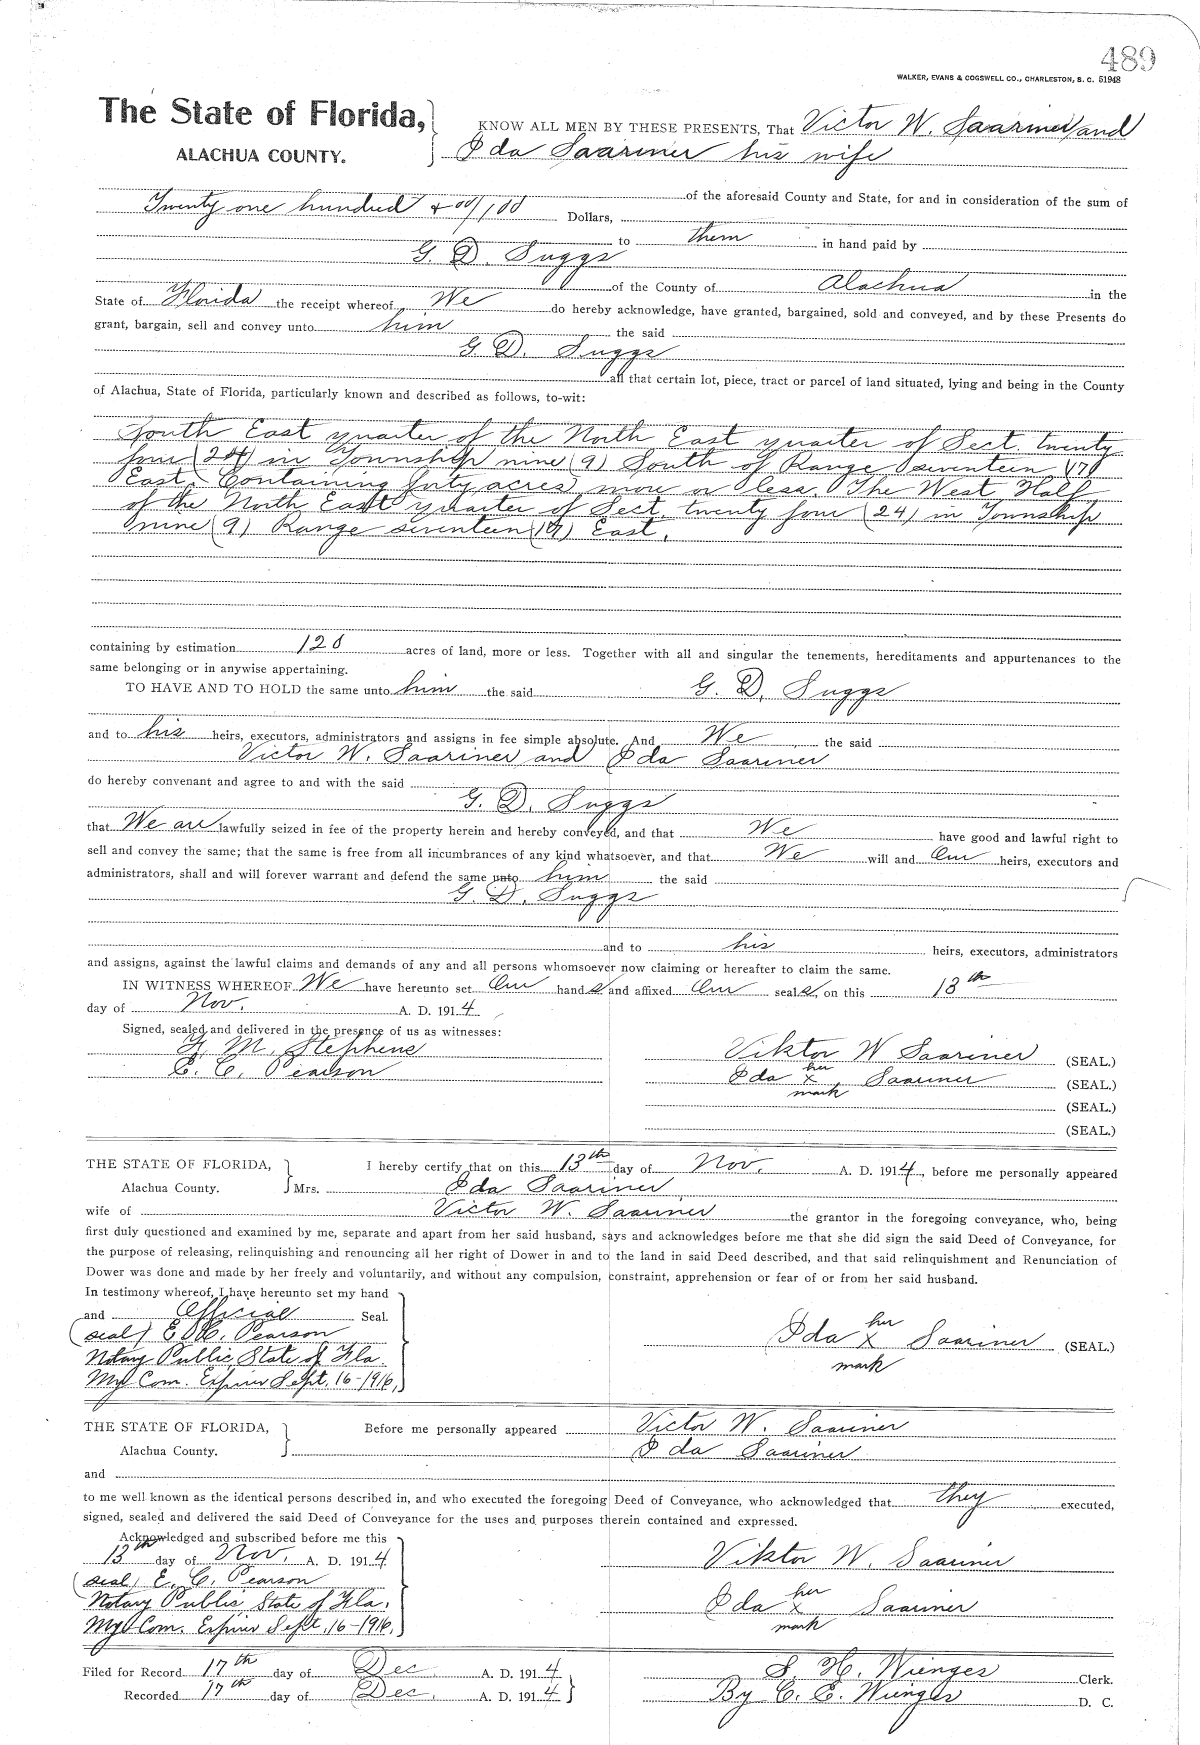 489
WALKER, EVANS & COGSWELL CO., CHARLESTON, S. C. 51948
The State of Florida,
ALACHUA COUNTY.
KNOW ALL MEN BY THESE PRESENTS, That Victor W. Saariner and
Ida Saariner his wife
of the aforesaid County and State, for and in consideration of the sum of
Twenty one hundred + 00/100 Dollars,
to them in hand paid by
G. D. Suggs
of the County of Alachua in the
State of Florida the receipt whereof We do hereby acknowledge, have granted, bargained, sold and conveyed, and by these Presents do
grant, bargain, sell and convey unto him the said
G. D. Suggs
all that certain lot, piece, tract or parcel of land situated, lying and being in the County
of Alachua, State of Florida, particularly known and described as follows, to-wit:
South East quarter of the North East quarter of Sect. twenty
four (24) in Township nine (9) South of Range seventeen (17)
East, Containing forty acres, more or less. The West Half
of the North East quarter of Sect. twenty four (24) in Township
nine (9) Range seventeen (17) East.
containing by estimation 120 acres of land, more or less. Together with all and singular the tenements, hereditaments and appurtenances to the
same belonging or in anywise appertaining.
TO HAVE AND TO HOLD the same unto him the said G. D. Suggs
and to his heirs, executors, administrators and assigns in fee simple absolute. And We the said
Victor W. Saariner and Ida Saariner
do hereby convenant and agree to and with the said
G. D. Suggs
that We are lawfully seized in fee of the property herein and hereby conveyed, and that We have good and lawful right to
sell and convey the same; that the same is free from all incumbrances of any kind whatsoever, and that We will and Our heirs, executors and
administrators, shall and will forever warrant and defend the same unto him the said
G. D. Suggs
and to his heirs, executors, administrators
and assigns, against the lawful claims and demands of any and all persons whomsoever now claiming or hereafter to claim the same.
IN WITNESS WHEREOF We have hereunto set Our hand s and affixed Our seal s, on this 13th
day of Nov. A. D. 1914
Signed, sealed and delivered in the presence of us as witnesses:
M. Stephens
E. C. Pearson
Viktor W Saariner (SEAL.)
Ida her x mark Saariner (SEAL.)
(SEAL.)
(SEAL.)
THE STATE OF FLORIDA,
Alachua County.
I hereby certify that on this 13th day of Nov. A. D. 1914, before me personally appeared
Mrs. Ida Saariner
wife of Victor W. Saariner the grantor in the foregoing conveyance, who, being
first duly questioned and examined by me, separate and apart from her said husband, says and acknowledges before me that she did sign the said Deed of Conveyance, for
the purpose of releasing, relinquishing and renouncing all her right of Dower in and to the land in said Deed described, and that said relinquishment and Renunciation of
Dower was done and made by her freely and voluntarily, and without any compulsion, constraint, apprehension or fear of or from her said husband.
In testimony whereof, I have hereunto set my hand
and Official Seal.
(seal) E. C. Pearson
Notary Public, State of Fla.
My Com. Expires Sept. 16-1916.
Ida her x mark Saariner (SEAL.)
THE STATE OF FLORIDA,
Alachua County.
Before me personally appeared Victor W. Saariner
Ida Saariner
and
to me well known as the identical persons described in, and who executed the foregoing Deed of Conveyance, who acknowledged that they executed,
signed, sealed and delivered the said Deed of Conveyance for the uses and purposes therein contained and expressed.
Acknowledged and subscribed before me this
13th day of Nov. A. D. 1914
(seal) E. C. Pearson
Notary Public State of Fla.
My Com. Expires Sept. 16-1916.
Viktor W. Saariner
Ida her x mark Saariner
Filed for Record 17th day of Dec. A. D. 1914
Recorded 17th day of Dec. A. D. 1914
S. H. Wienges Clerk.
By C. E. Wienges D. C.